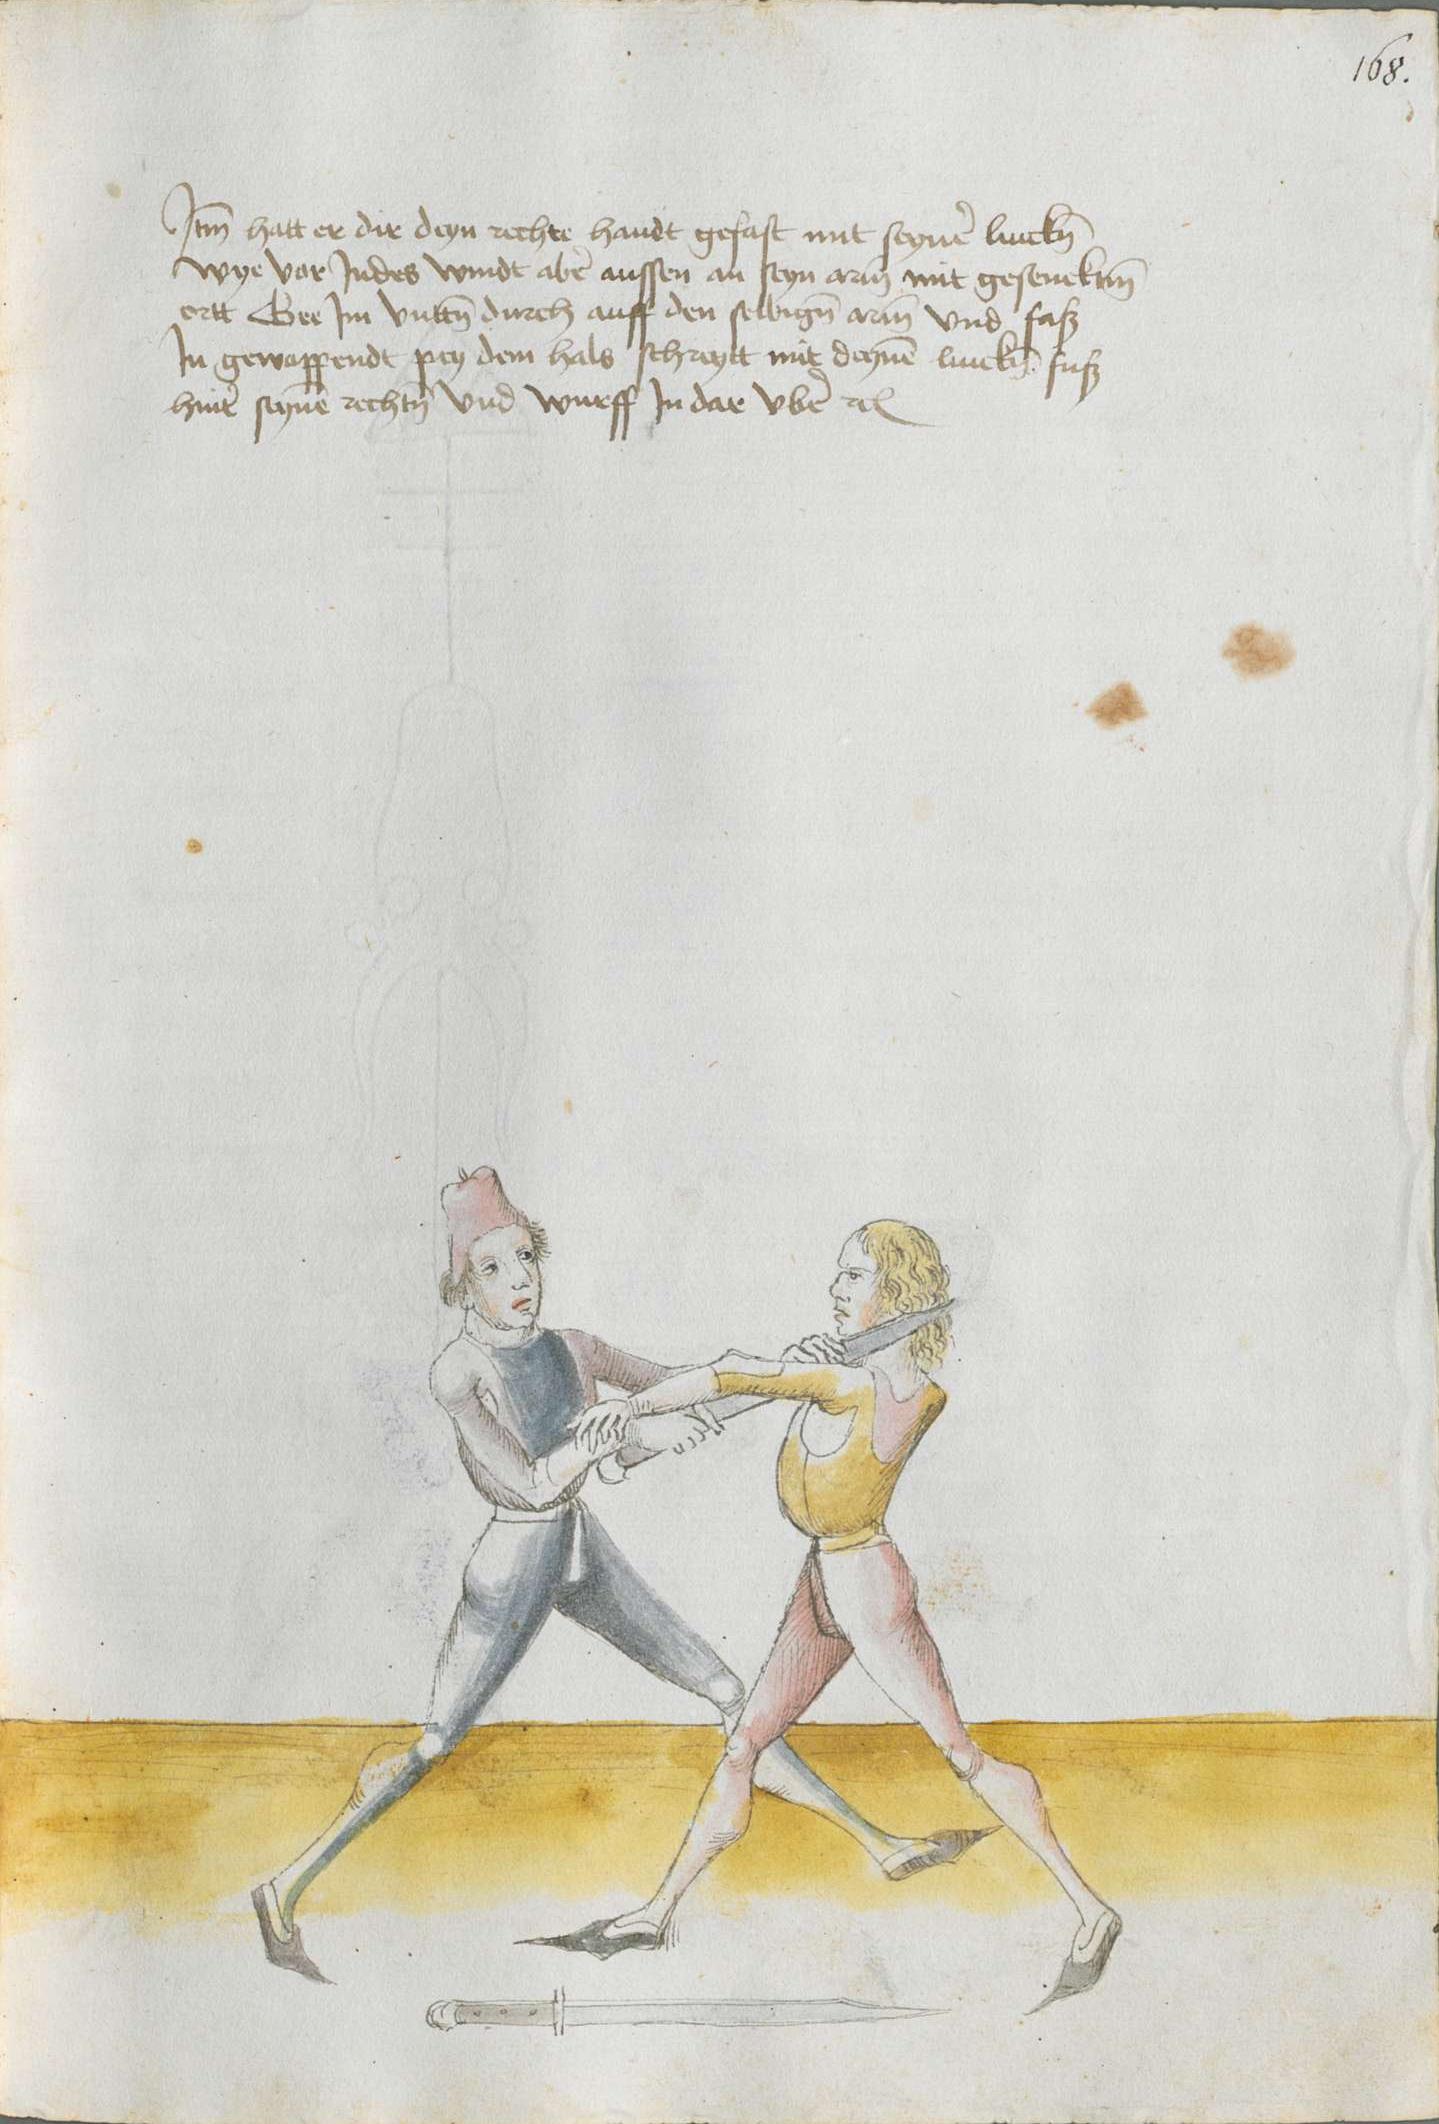 168.
Itm̄ hatt er dir deyn rechte handt gefast mit seyne᷑ linckn̄
wye vor Indes windt abe᷑ aussen an seyn arm̄ mit gesencktm̄
ortt Gee Im vnttn̄ durch auff den selbign̄ arm̄ vnd faß
In gewappendt pey dem hals schreytt mit deynē linckn̄ fuß
hint᷑ seynē rechtn̄ vnd wurff In dar vbe᷑ rc